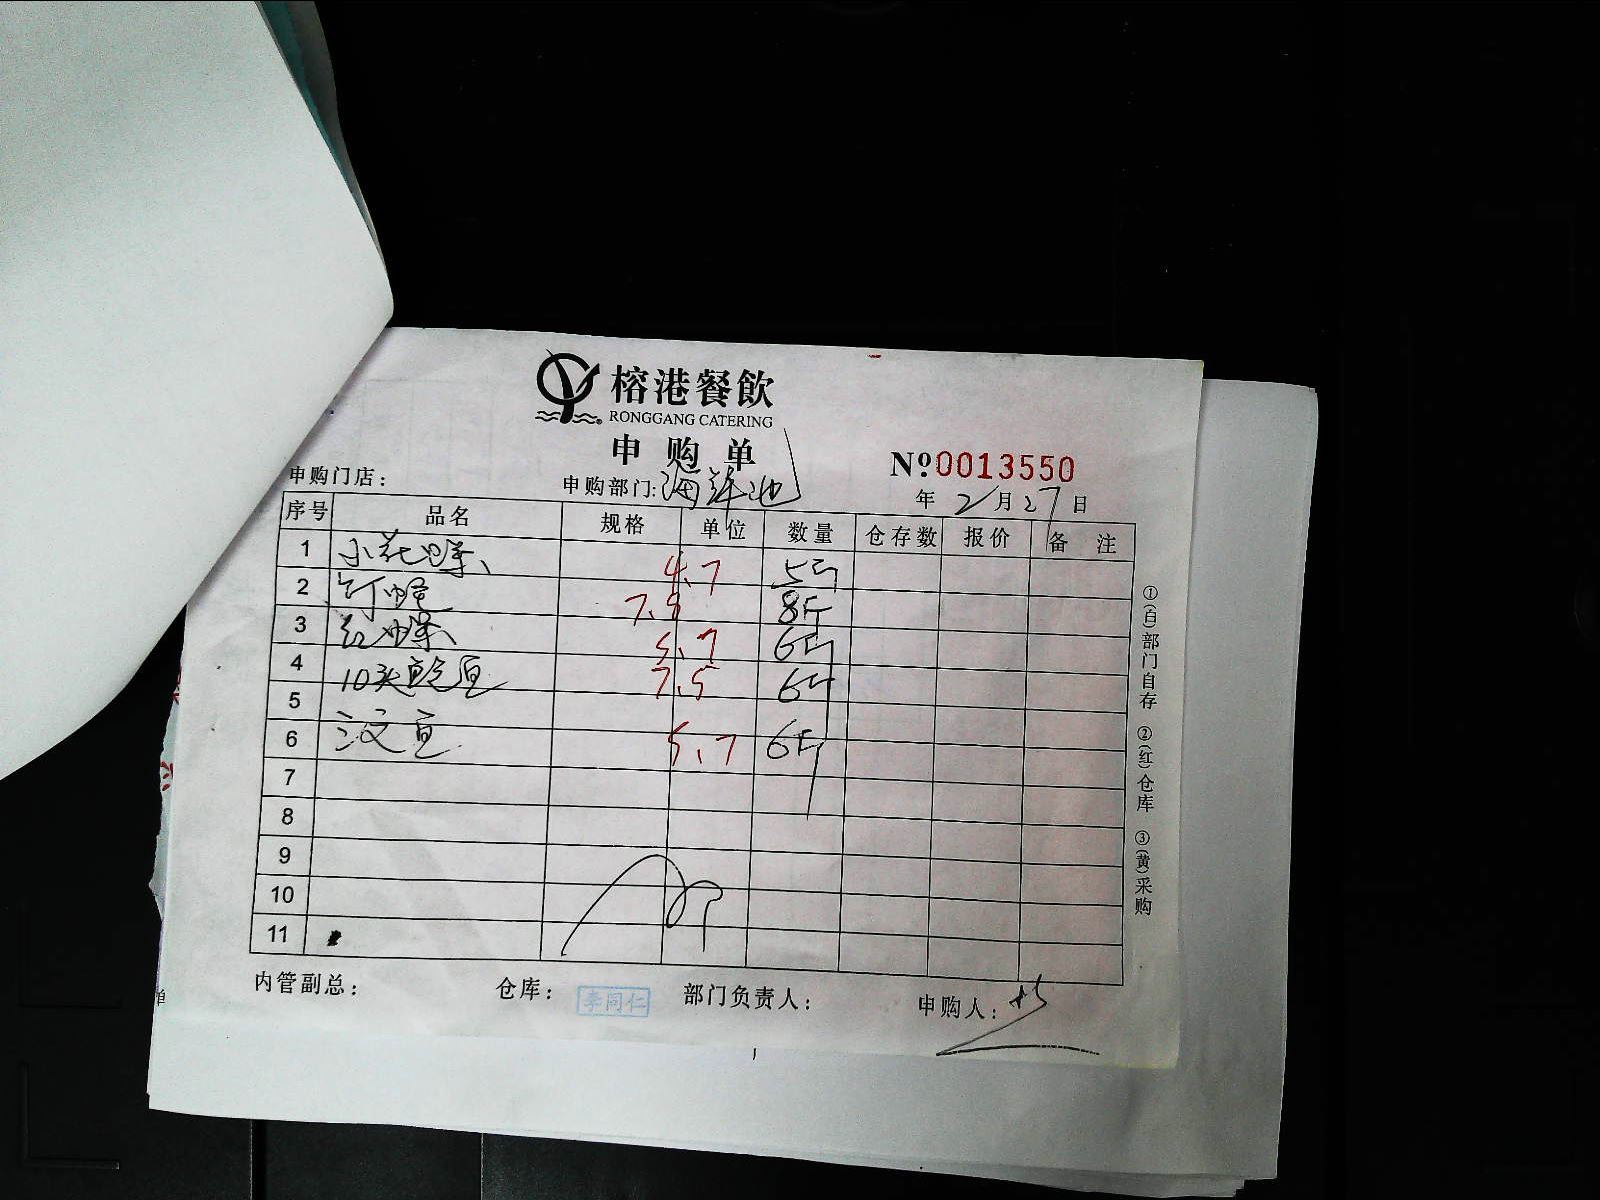 榕港餐飲
RONGGANG CATERING
申购单
№0013550
申购门店：
申购部门：海鲜池
年 2月27日
序号 品名 规格 单位 数量 仓存数 报价 备注
1 小花螺 4.7 5斤
2 7.8 8斤
3 红螺 5.7 6斤
4 10头鲍鱼 7.5 6斤
5
6 5.7 6斤
7
8
9
10
11
内管副总：
仓库：李同仁
部门负责人：
申购人：
①(白)部门自存 ②(红)仓库 ③(黄)采购
单